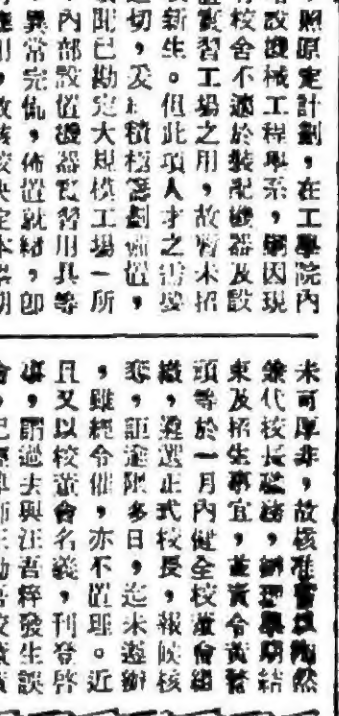 照原定計劃，在工學院內
改機械工程學系，嗣因現
校舍不適於裝配機器及設
置實習工場之用，故暫未招
新生。但此項人才之需要
切，爰積極籌劃佈置，
即已勘定大規模工場一所
內部設置機器實習用具等
異常完備，佈置就緒，即
未可厚非，故核准
兼代校長職務，辦理學期結
束及招生事宜，並責令黃
頭等於一月內健全校董會組
織，遴選正式校長，報候核
奪，詎逾限多日，迄未遵辦
，雖經令催，亦不置理。近
且又以校董會名義，刊登啓
事，謂過去與汪吾粹發生誤